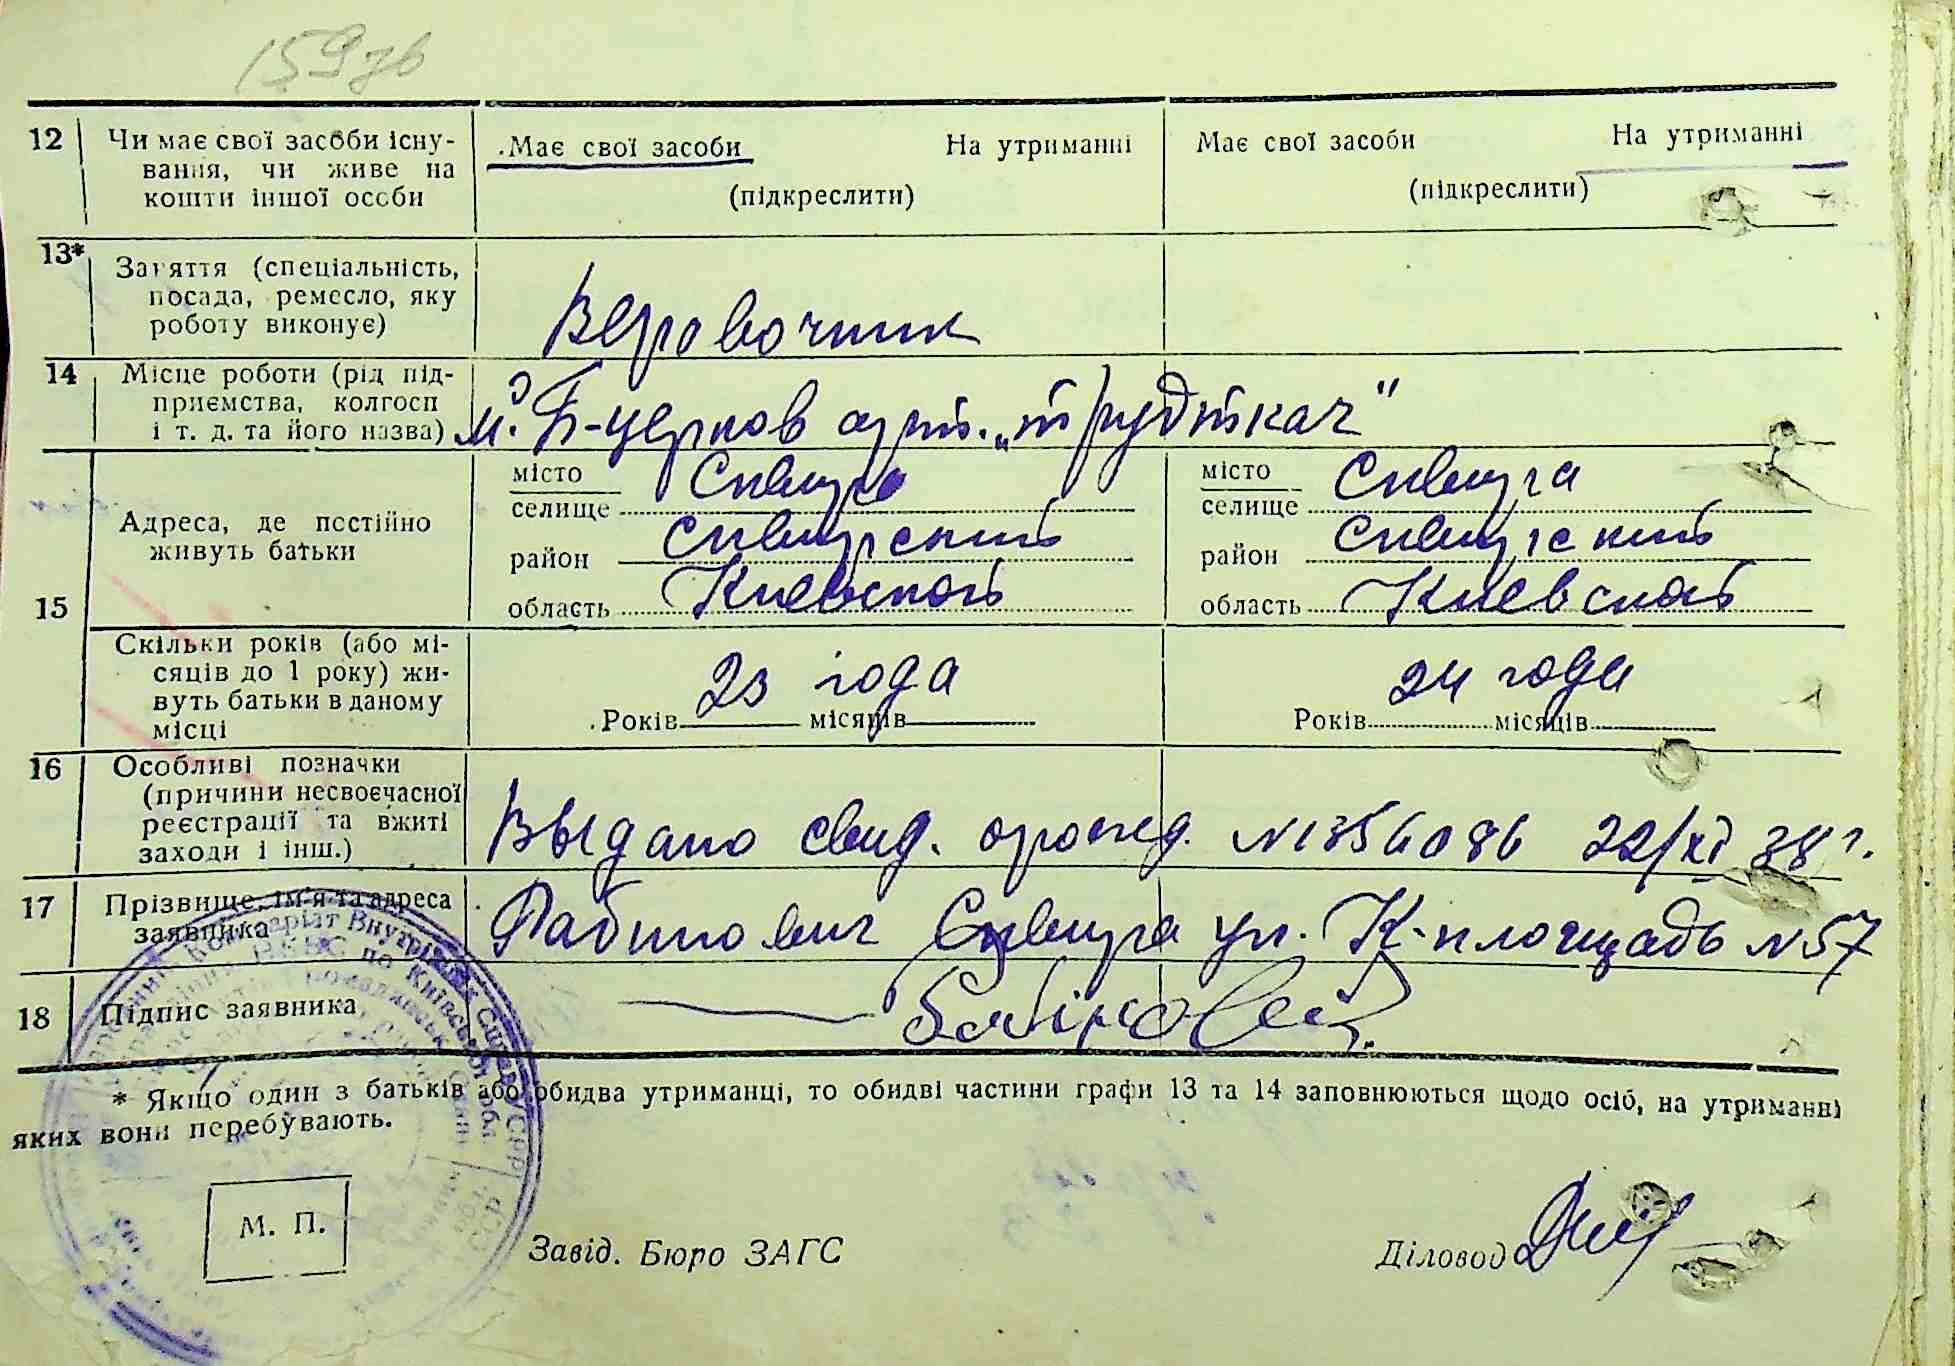 159 зв
12 Чи має свої засоби існу-
вання, чи живе на
кошти іншої особи
Має свої засоби На утриманні
(підкреслити)
Має свої засоби На утриманні
(підкреслити)
13* Заняття (спеціальність,
посада, ремесло, яку
роботу виконує)
Веровочник
14 Місце роботи (рід під-
приємства, колгосп
і т. д. та його назва)
м. Б-церков арт. „трудткач"
15 Адреса, де постійно
живуть батьки
місто
селище Сквира
район Сквирский
область Киевской
місто
селище Сквира
район Сквирский
область Киевской
Скільки років (або мі-
сяців до 1 року) жи-
вуть батьки в даному
місці
23 года
Років місяців
24 года
Років місяців
16 Особливі позначки
(причини несвоєчасної
реєстрації та вжиті
заходи і інш.)
Выдано свид. о рожд. N 1356086 22/XI 38 г.
17 Прізвище, ім'я та адреса
заявника
Рабинович Сквира ул. К-площадь N 57
18 Підпис заявника
* Якщо один з батьків або обидва утриманці, то обидві частини графи 13 та 14 заповнюються щодо осіб, на утриманні
яких вони перебувають.
М. П.
Завід. Бюро ЗАГС
Діловод